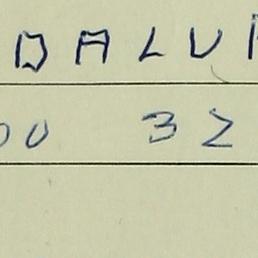 DALU
00 32